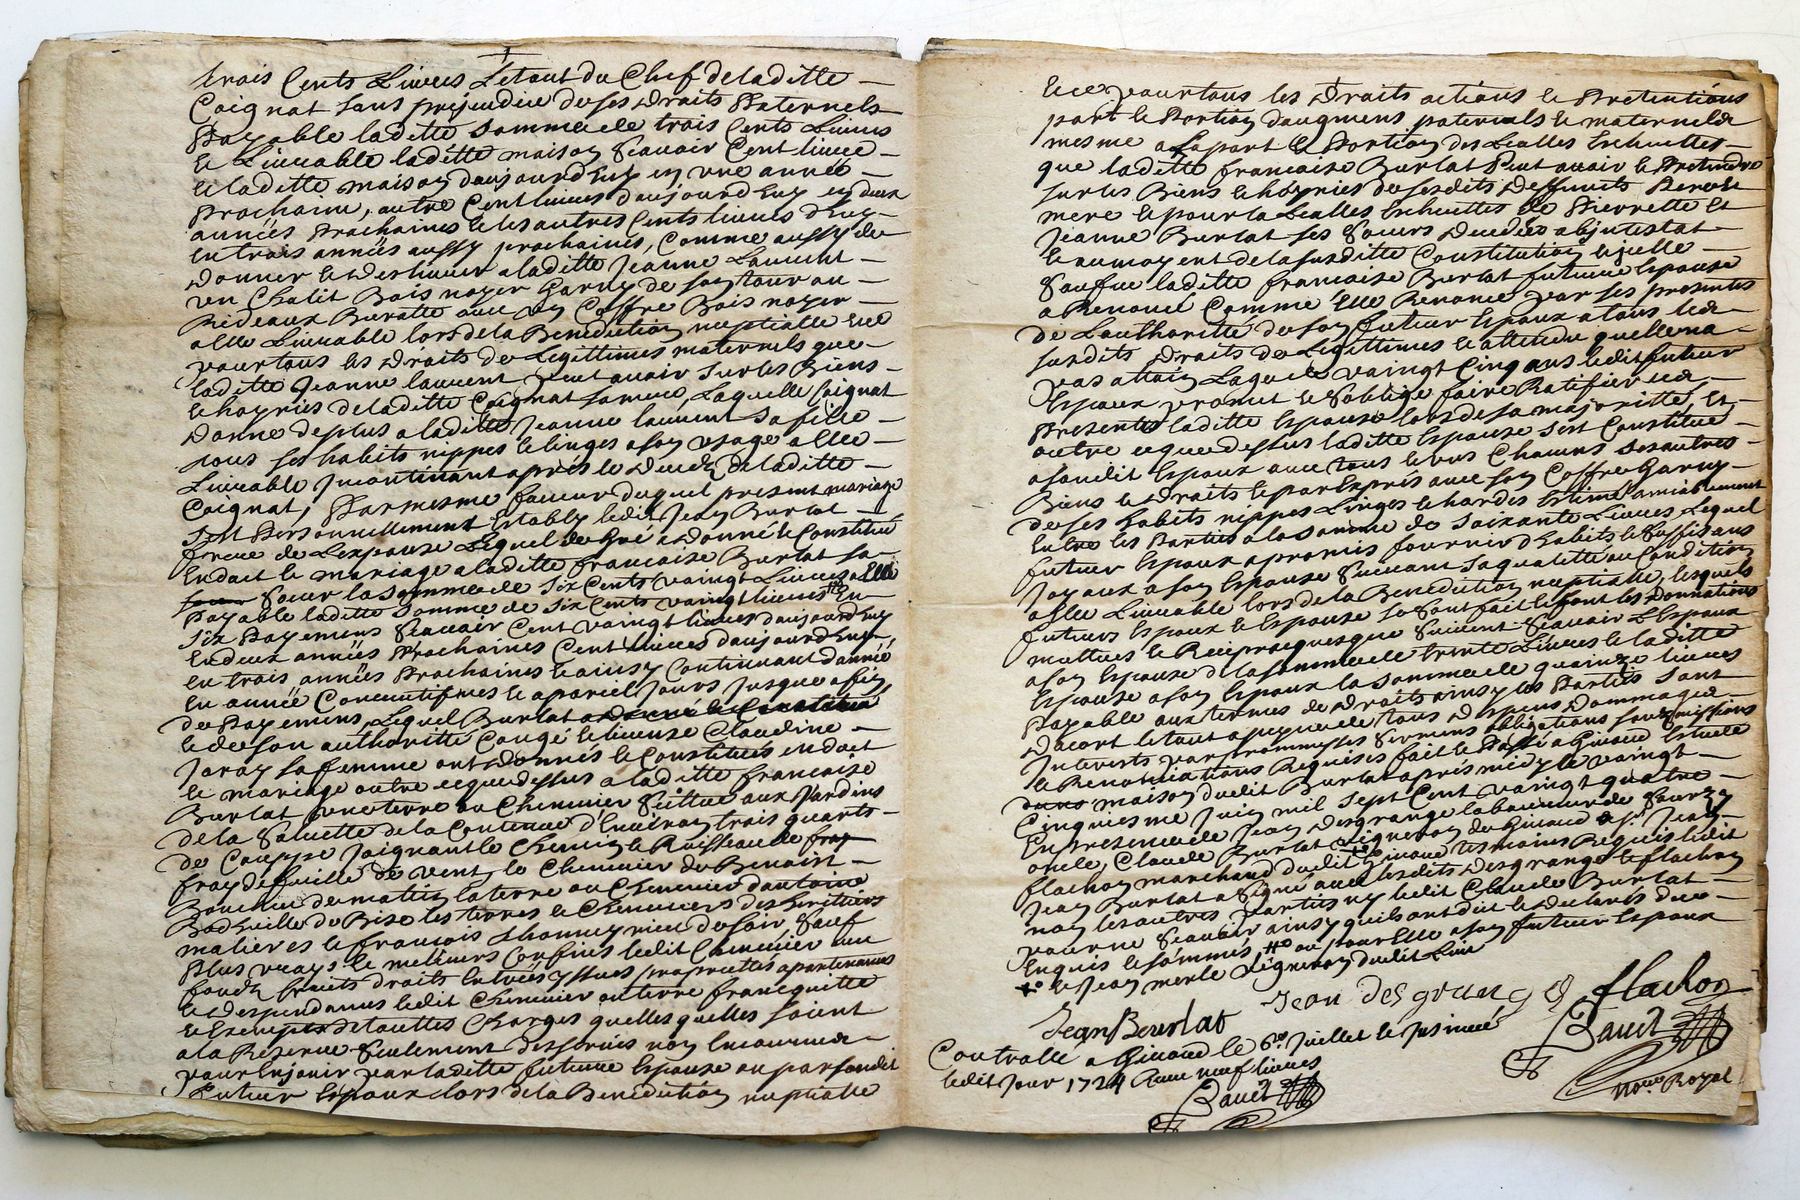 trois Cents Livres Letout du Chef de laditte
Coignat sans prejudice de ses droits Paternels
Payable laditte somme de trois Cents Livres
et Livrable laditte maison Scavoir Cent livres
et laditte maison daujourdhuy en une année
Prochaine, autre Cent livres daujourdhuy en deux
années Prochaines et les autres Cents livres dhuy
en trois années aussy prochaines, Comme aussy de
donner et deslivrer a laditte Jeanne Laurent
un Chalit Bois noyer garny de son tour ou
Rideaux Buratte avec un Coffre Bois noyer
a elle Livrable lors de la Benediction nuptialle et ce
pour tous les droits de Legittimes maternels que
laditte Jeanne laurent peut avoir sur les Biens
et hoyries de laditte Coignat sa mere, Laquelle Coignat
donne de plus a laditte Jeanne laurent sa fille
tous ses habits nippes et linges a son usage a elle
Livrable Incontinant aprés le decés de laditte
Coignat, Par mesme faveur duquel present mariage
s'est Personnellement Estably ledit Jean Burlat
frere de Lespouse Lequel de gré a donné et Constitué
en dot et mariage a laditte francoise Burlat sa
soeur la somme de six Cents vaingt Livres a Elle
payable laditte somme de six Cents vaingt livres En
six Payemens Scavoir Cent vaingt livres daujourdhuy
en deux années Prochaines Cent livres daujourdhuy
en trois années Prochaines et ainsy Continuant dannée
en année Concecutifves et a pareil Jours Jusques a fin
de Payemens, Lequel Burlat
et de son authoritté Congé et licence Claudine
Jaray sa femme ont donnés et Constitués en dot
et mariage outre ce que dessus a laditte francoise
Burlat une terre ou Chenevier Scittué aux Jardins
de la Saluette de la Contenue d'Environ trois quarts
de Couppe Joignant le Chemin et Ruisseau de
fray de feuille de vent, le Chenevier de Benoist
Bouchu de matin, la terre ou Chenevier dantoine
de Bise les terres et Cheneviers des heritiers
et francois de soir Sauf
Plus vrays et meilleurs Confins ledit Chenevier avec
fonds fruits droits Entrées yssues proprietés apartenances
et despendances ledit Chenevier ou terre francquitte
et Exempte de touttes Charges quelles quelles soient
a la Reserve Seulement des servis non Encourus
pour En jouir par laditte future Espouse ou par sondit
futur Espoux lors de la Benediction nuptialle
et ce pour tous les droits actions et Pretentions
part et Portion daugmens paternels et maternels
mesme a la part et Portion des Ecalles Echuettes
que laditte francoise Burlat Peut avoir et Pretendre
sur les Biens et hoyries de sesdits deffunts Pere et
mere et pour la Ecalles Echuettes de Pierrette et
Jeanne Burlat ses Soeurs decedés abjntestat
et au moyent de la susditte Constitution icelle
Sauf que laditte francoise Burlat future Espouse
a Renoncé Comme Elle Renonce par ses presentes
de Lauthoritté de son futur Espoux a tous les
susdits droits de Legittimes et attendu quelle na
pas attain Laage de vaingt Cinq ans ledit futur
Espoux promet et S'oblige faire Ratifier les
Presentes laditte Espouse lors de sa majoritté, Et
outre ce que dessus laditte Espouse s'est Constitué
a sondit Espoux avec tous et uns Chacuns ses autres
Biens et droits et par Exprés avec son Coffre Garny
de ses habits nippes Linges et hardes Estimé amiablement
Entre les Parties a la somme de Soixante Livres Lequel
futur Espoux a promis fournir d'habits et Suffisans
Joyaux a son Espouse Suivant sa qualitté ou Condition
a Elle Livrable lors de la Benediction nuptialle, lesquels
futurs Espoux et Espouse se sont fait et font les donnations
mutuées et Reciproques que Suivent Scavoir L'Espoux
a son Espouse de la somme de trente Livres et laditte
Espouse a son Espoux la somme de quainze livres
Payable aux termes de droits ainsy les Parties sont
dacort et tout a peyne de tous despens dommages
Interets par promesses sermens obligations soubzmissions
et Renonciations Requises fait et Passé a Givord Estude
maison dudit Burlat aprés midy le vaingt
Cinquiesme Juin mil sept Cent vaingt quatre
En presence de Jean desgrange laboureur de
oncle, Claude Burlat vigneron de Givord Sr. Jean
flachon marchand dudit Givord tesmoins Requis ledit
Jean Burlat a signé avec lesdits desgrange et flachon
non les autres parties ny ledit Claude Burlat
pour ne Scavoir ainsy quils ont dit et declarés de ce
Enquis et sommés, ou pour Elle a son futur Espoux
et Jean merle vigneron dudit Lieu
Jean des grange flachon
Jean Bourlat
Controllé a Givord le 6e. Juillet et Insinué
ledit Jour 1724 Reçu neuf livres
Bauet
Bauet
nore. Royal